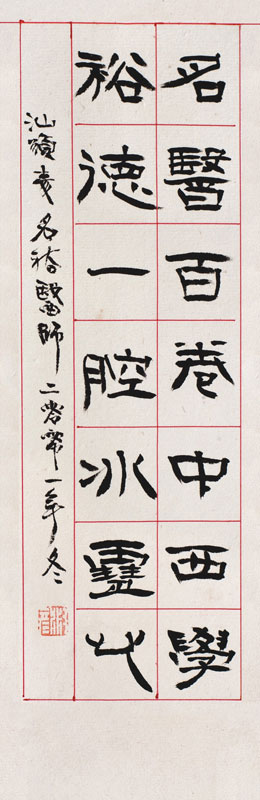 名醫百卷中西學
裕德一腔冰靈心
名裕醫師 二零零一年冬